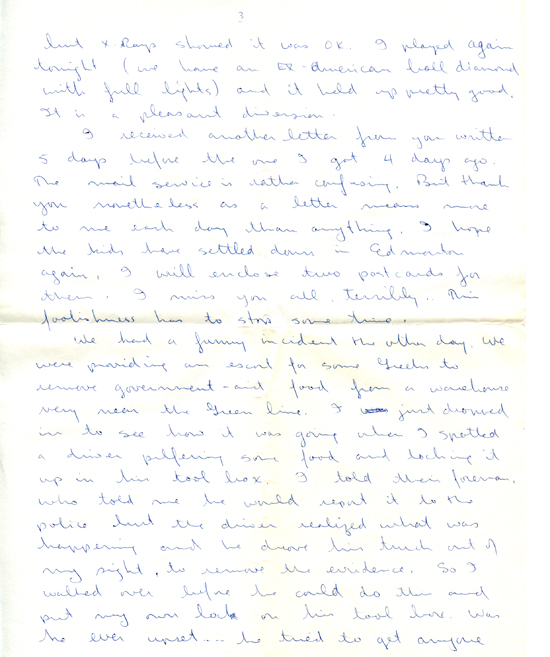 3
but X-Rays showed it was OK. I played again
tonight (we have an ex-American ball diamond
with full lights) and it held up pretty good.
It is a pleasant diversion.
I received another letter from you written
5 days before the one I got 4 days ago.
The mail service is rather confusing. But thank
you nonetheless as a letter means more
to me each day than anything. I hope
the kids have settled down in Edmonton
again. I will enclose two postcards for
them. I miss you all, terribly.. This
foolishness has to stop some time.
We had a funny incident the other day. We
were providing an escort for some Greeks to
remove government-aid food from a warehouse
very near the Green line. I just dropped
in to see how it was going when I spotted
a driver pilfering some food and locking it
up in his tool box. I told their foreman,
who told me he would report it to the
police but the driver realized what was
happening and he drove his truck out of
my sight, to remove the evidence. So I
walked over before he could do this and
put my own lock on his tool box. Was
he ever upset... he tried to get anyone